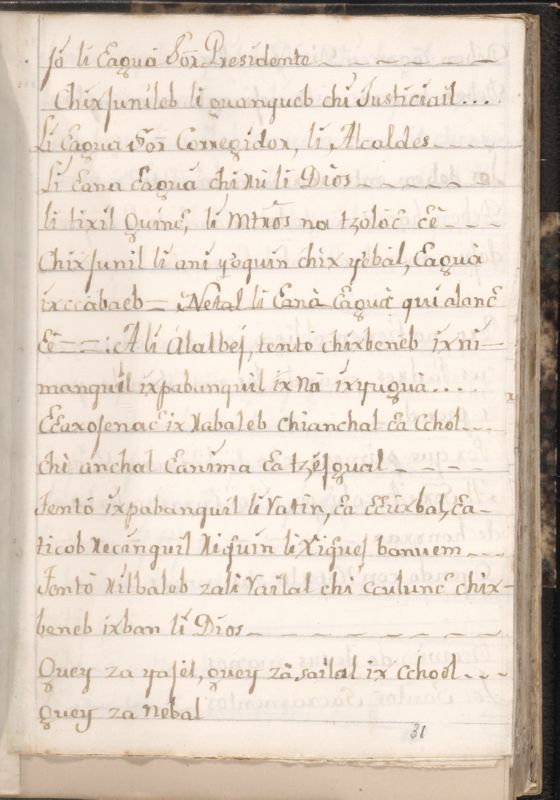 Jo li Eaguâ Sor̃. Presidente
Chixjunileb li guanqueb chi Justiciail....
Li Eagua Sor̃ Corregidor, li Alcaldes
Li Eana Eaguâ chi Nu li Dios
li tixil Quinc̃, li Mtrõs na tzolõc̃ c̃ẽ
Chixjunil li ani yoquin chix yẽbal, Eaguâ
ixccabaeb = Netal li Eanà Eaguâ qui alanc̃
Eê = =: A li Alalbej, tentò chixbeneb ix ni-
manquil ixpabanquil ix Na ixyuguâ....
chianchal Ea Cchol...
chi anchal Eanima Ea tzéjgual
Tentò ixpabanquil li Vatin, Ea Ea-
ticob Necinquil banuem...
Tentò Nilbaleb zali Vailal chi chix-
beneb ixban li Dios
Quey za yajel, quey zâ sailal ix Cchool...
quey za Nebal
31